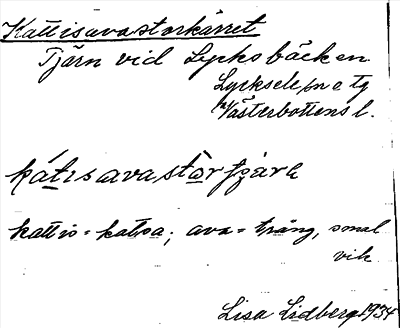 Kattisavastorkärret
Tjärn vid Lycksbäcken.
Lycksele sn o tg
Västerbottens l.
kátisavastòrtjàrɛ
kattis = katsa; ava = trång, smal
vik
Lisa Lidberg 1934